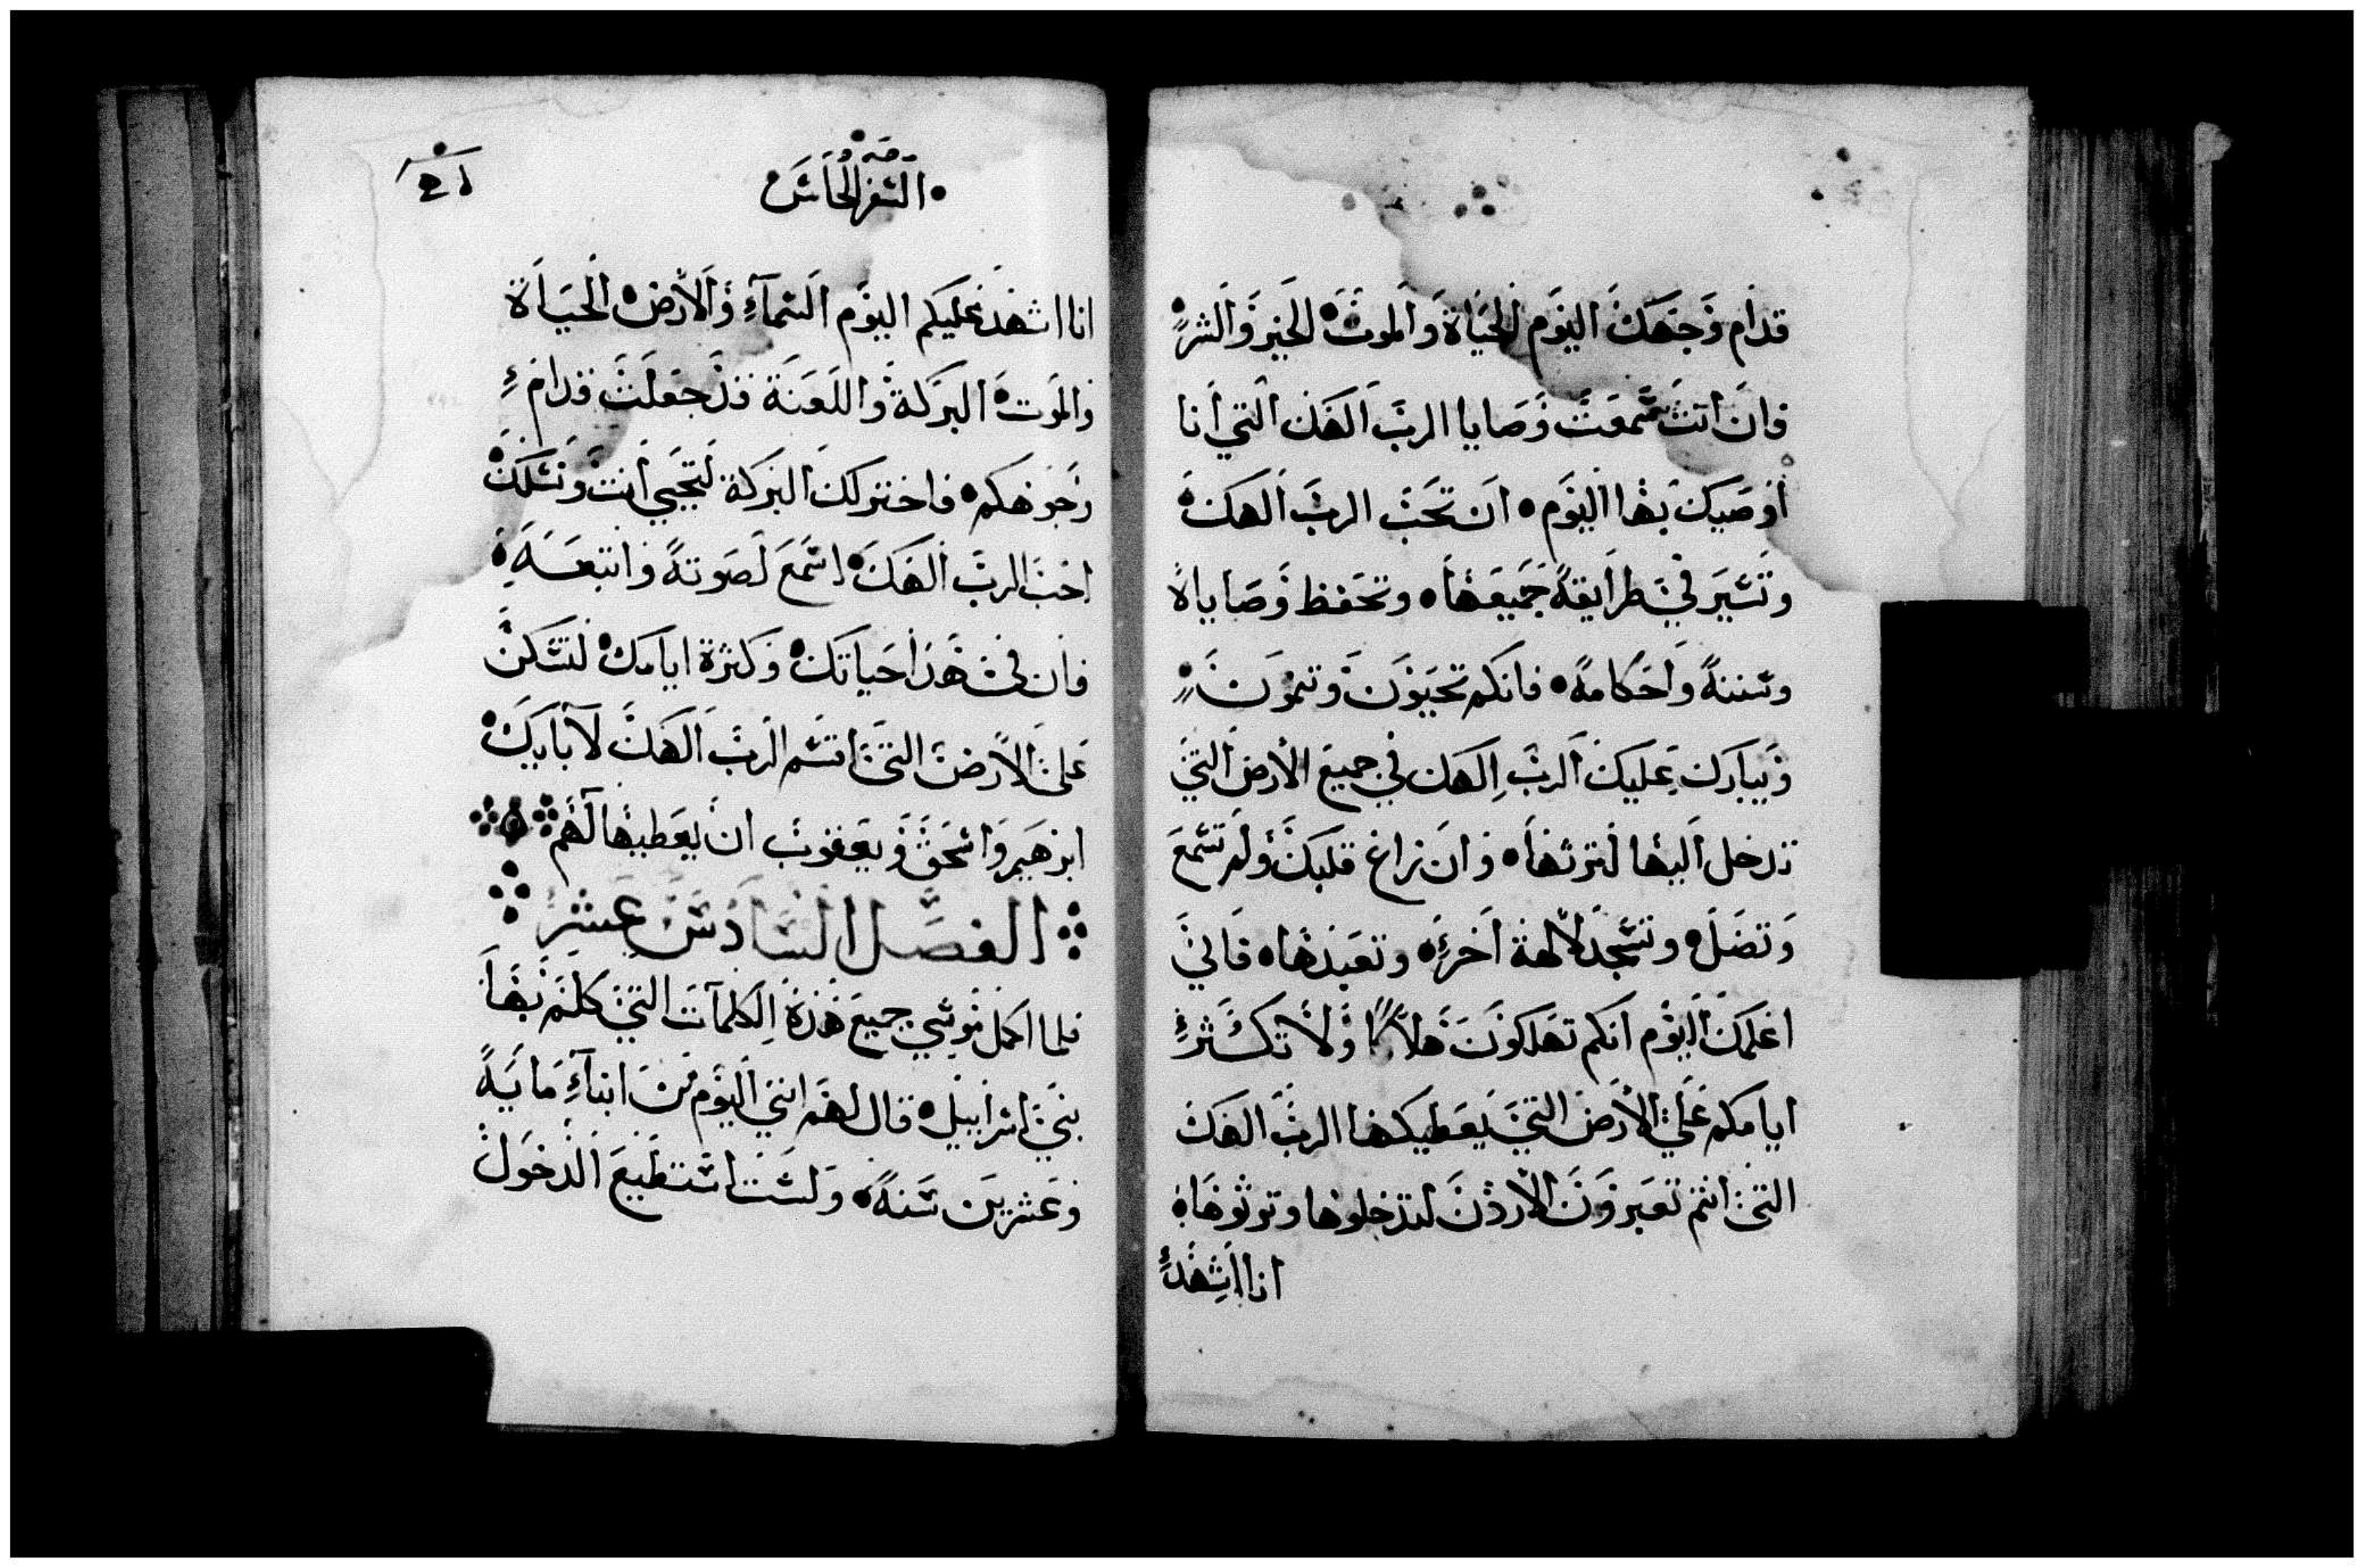 قدام وجهك اليوم الحياة والموت الخير والشر
فان انت سمعت وصايا الرب الهك التي انا
اوصيك بها اليوم ان تحب الرب الهك
وتسير في طرايقه جميعها وتحفظ وصاياه
وسننه واحكامه فانكم تحيون وتنمون
ويبارك عليك الرب الهك في جميع الارض التي
تدخل اليها لترثها وان زاغ قلبك ولم تسمع
وتضل وتسجد لالهة اخر وتعبدها فاني
اعلمك اليوم انكم تهلكون هلاكا ولا تكثر
ايامكم علي الارض التي يعطيكها الرب الهك
التي انتم تعبرون الاردن لتدخلوها وتورثوها
انا اشهد
السفر الخامس
انا اشهد عليكم اليوم السماء والارض الحياة
والموت البركة واللعنة قد جعلت قدام
وجوهكم فاختر لك البركة لتحيي انت ونسلك
احب الرب الهك اسمع لصوته واتبعه
فان في هذا حياتك وكثرة ايامك لتسكن
على الارض التي اقسم الرب الهك لابايك
ابرهيم واسحق ويعقوب ان يعطيها لهم
الفصل السادس عشر
فلما اكمل موسي جميع هذه الكلمات التي كلم بها
بني اسراييل قال لهم انني اليوم من ابناء ماية
وعشرين سنة ولست استطيع الدخول